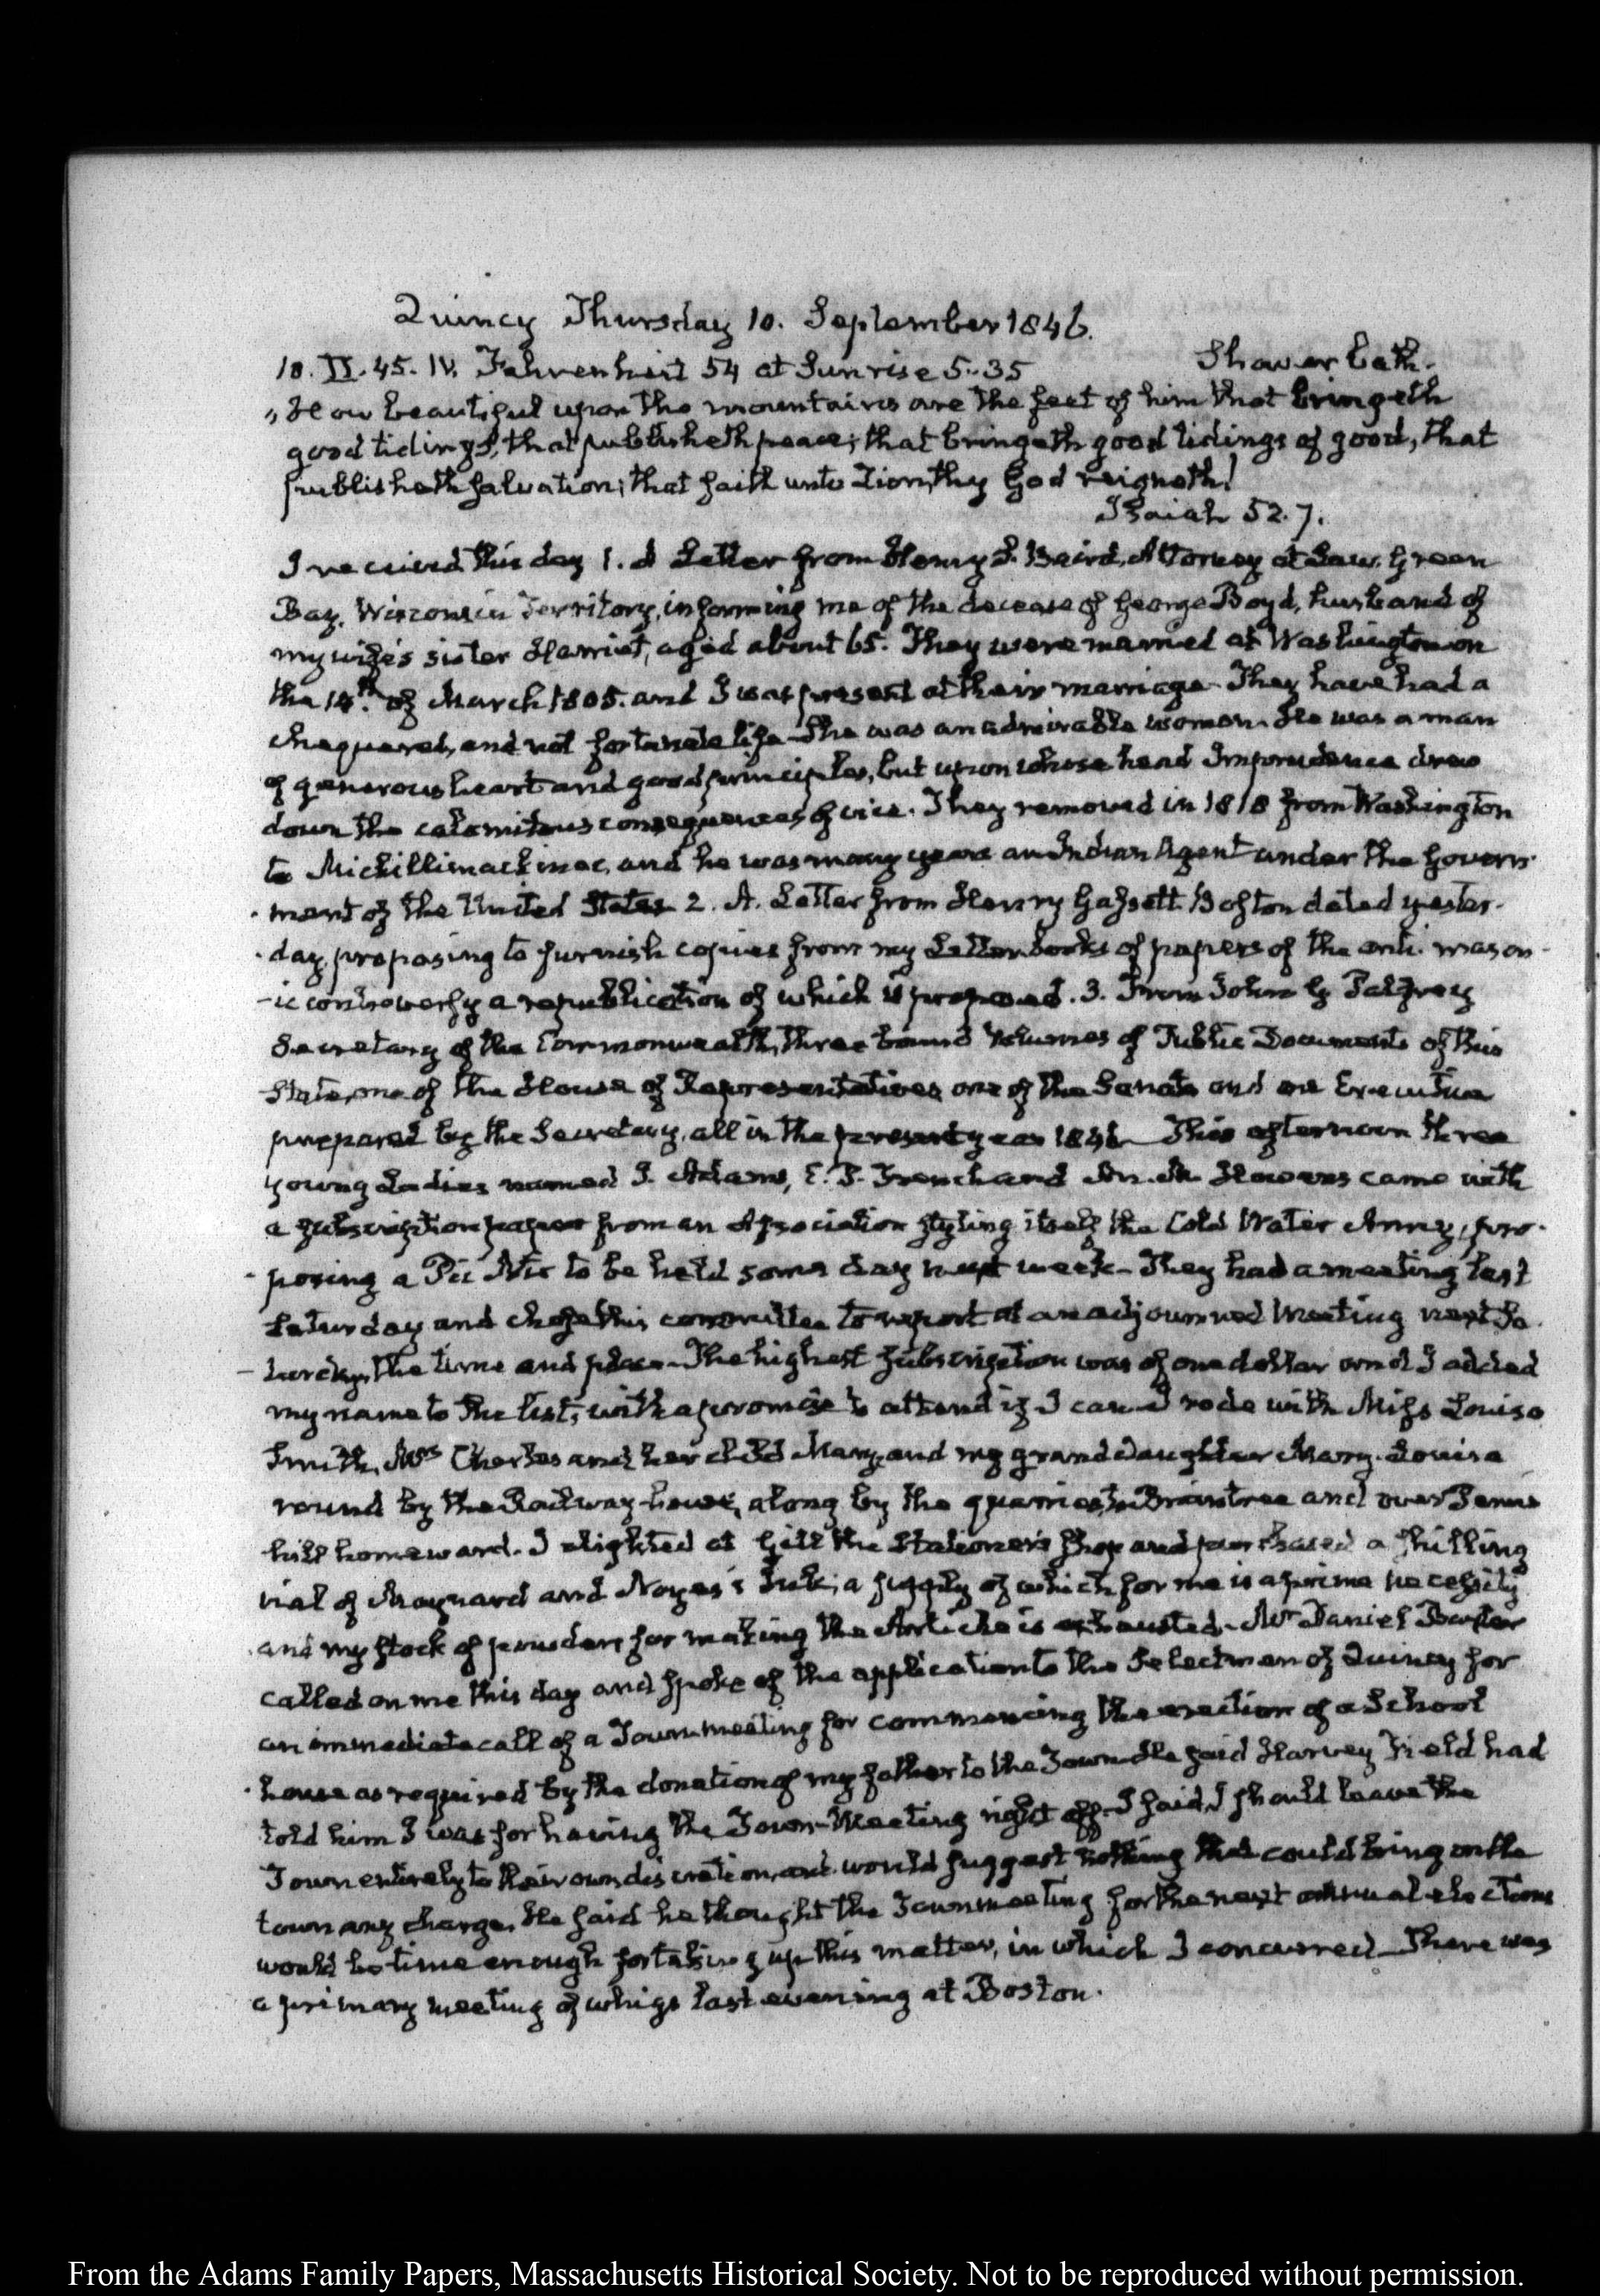 Quincy Thursday 10. September 1846.
10. II. 45. IV. Fahrenheit 54 at Sunrise 5.35 Shower bath.
„How beautiful upon the mountains are the feet of him that bringeth
good tidings, that publisheth peace; that bringeth good tidings of good, that
publisheth salvation; that saith unto Zion, thy God reigneth!
Isaiah 52.7.
I received this day 1. A Letter from Henry S. Baird, Attorney at Law, Green
Bay, Wisconsin Territory, informing me of the decease of George Boyd, husband of
my wife's sister Harriet, aged about 65. They were married at Washington on
the 14th. of March 1805. and I was present at their marriage. They have had a
chequered, and not fortunate life. She was an admirable woman. He was a man
of generous heart and good principles, but upon whose head Imprudence drew
down the calamitous consequences of vice. They removed in 1818 from Washington
to Michillimackinac, and he was many years an Indian Agent under the Govern-
-ment of the United States 2. A. Letter from Henry Gassett. Boston dated yester-
-day, proposing to furnish copies from my Letter books of papers of the anti-mason-
-ic controversy a republication of which is proposed. 3. From John G Palfrey
Secretary of the Commonwealth, three bound Volumes of Public Documents of this
State, one of the House of Representatives one of the Senate and one Executive
prepared by the Secretary, all in the present year 1846 This afternoon three
young Ladies named J. Adams, E. P. French and M. Howes came with
a subscription paper from an Association styling itself the Cold Water Army, pro-
-posing a Pic Nic to be held some day next week. They had a meeting last
Saturday and chose this committee to report at an adjourned Meeting next Sa-
-turday, the time and place. The highest subscription was of one dollar and I added
my name to the list, with a promise to attend if I can. I rode with Miss Louisa
Smith, Mrs Charles and her child Mary, and my grand daughter Mary-Louisa
round by the Railway-house, along by the quarries, to Braintree and over Penns
hill homeward. I alighted at Gill the Stationer's Shop and purchased a shilling
vial of Maynard and Noyes's Ink; a supply of which for me is a prime necessity
and my stock of powders for making the Article is exhausted. Mr Daniel Baxter
called on me this day and spoke of the application to the Selectmen of Quincy for
an immediate call of a Town-meeting for commencing the erection of a School
house as required by the donation of my father to the Town. He said Harvey Field had
told him I was for having the Town-Meeting right off. I said, I should leave the
Town entirely to their own discretion, and would suggest nothing that could bring on the
town any charge. He said he thought the Town meeting for the next annual elections
would be time enough for taking up this matter, in which I concurred. There was
a primary meeting of whigs last evening at Boston.
From the Adams Family Papers, Massachusetts Historical Society. Not to be reproduced without permission.